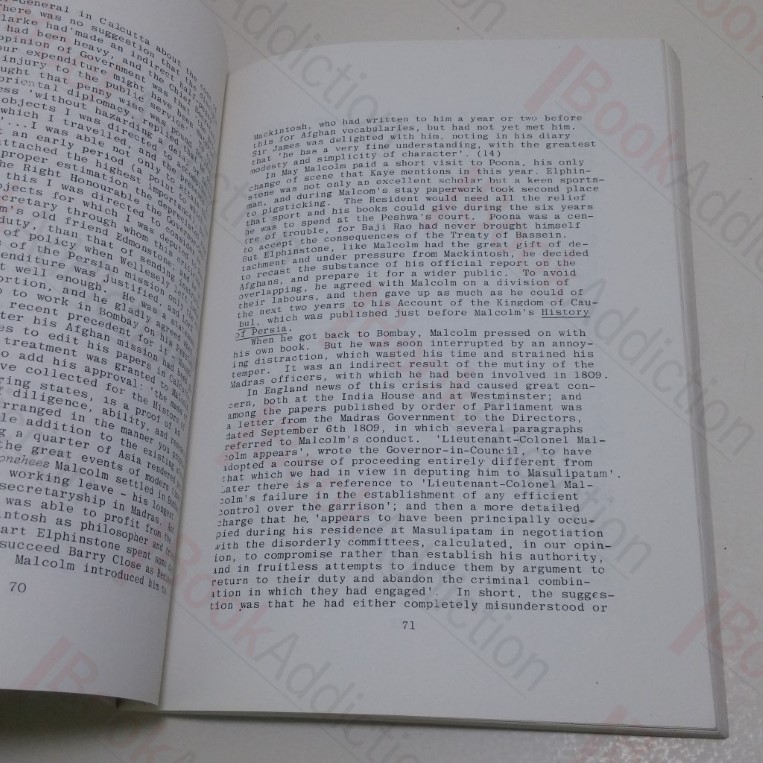 -General in Calcutta about the
There was no suggestion that the
Clarke had made an indirect
had been heavy, and the Chief
opinion of Government was
our expenditure might have been
injury to the public service
ught that penny wise
oriental diplomacy,
ess 'without hazarding a
objects I was directed to
which I travelled, and to
....I was able to
t an early period (a point
attached the highest
proper estimation the
the Right Honourable the Governor
this I was directed to
objects for which I was
ecretary through whom this
m's old friend Edmonstone
duty, than that of sending
of policy when Wellesley
s of the Persian mission
penditure was justified, and
t well enough. He was
ortion, and he gladly agreed
to work in Bombay on his
recent precedent for
ter his Afghan mission had
es to edit his papers in
treatment was granted to
o add his approval: 'the
ve collected for the History
ring states, is a proof of
g diligence, ability, and
arranged in the manner you
le addition to the existing
g a quarter of Asia rendered
the great events of modern
Malcolm settled in
working leave - his longest
secretaryship in Madras.
was able to profit from the
intosh as philosopher and
art Elphinstone spent
succeed Barry Close as
Malcolm introduced him to
70
Mackintosh, who had written to him a year or two before
this for Afghan vocabularies, but had not yet met him.
Sir James was delighted with him, noting in his diary
that 'he has a very fine understanding, with the greatest
modesty and simplicity of character'. (14)
In May Malcolm paid a short visit to Poona, his only
change of scene that Kaye mentions in this year. Elphin-
stone was not only an excellent scholar but a keen sports-
man, and during Malcom's stay paperwork took second place
to pigsticking. The Resident would need all the relief
that sport and his books could give during the six years
he was to spend at the Peshwa's court. Poona was a cen-
tre of trouble, for Baji Rao had never brought himself
to accept the consequences of the Treaty of Bassein.
But Elphinstone, like Malcolm had the great gift of de-
tachment and under pressure from Mackintosh, he decided
to recast the substance of his official report on the
Afghans, and prepare it for a wider public. To avoid
overlapping, he agreed with Malcolm on a division of
their labours, and then gave up as much as he could of
the next two years to his Account of the Kingdom of Cau-
bul, which was published just before Malcolm's History
of Persia.
When he got back to Bombay, Malcolm pressed on with
his own book. But he was soon interrupted by an annoy-
ing distraction, which wasted his time and strained his
temper. It was an indirect result of the mutiny of the
Madras officers, with which he had been involved in 1809.
In England news of this crisis had caused great con-
cern, both at the India House and at Westminster; and
among the papers published by order of Parliament was
a letter from the Madras Government to the Directors,
dated September 6th 1809, in which several paragraphs
referred to Malcolm's conduct. 'Lieutenant-Colonel Mal-
colm appears', wrote the Governor-in-Council, 'to have
adopted a course of proceeding entirely different from
that which we had in view in deputing him to Masulipatam'.
Later there is a reference to 'Lieutenant-Colonel Mal-
colm's failure in the establishment of any efficient
control over the garrison'; and then a more detailed
charge that he, 'appears to have been principally occu-
pied during his residence at Masulipatam in negotiation
with the disorderly committees, calculated, in our opin-
ion, to compromise rather than establish his authority,
and in fruitless attempts to induce them by argument to
return to their duty and abandon the criminal combin-
ation in which they had engaged'. In short, the sugges-
tion was that he had either completely misunderstood or
71